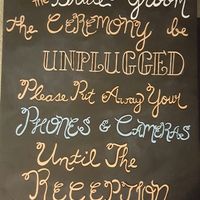 the Bride Groom
the CEREMONY be
UNPLUGGED
Please Put Away Your
PHONES & CAMERAS
Until The
RECEPTION